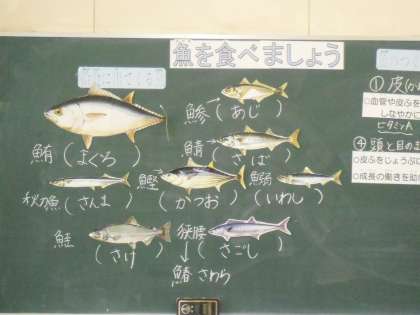 魚を食べましょう
鯵(あじ)
鮪(まぐろ)
鯖(さば)
秋刀魚(さんま)
鰹(かつお)
鰯(いわし)
鮭(さけ)
狭腰(さごし)
鰆 さわら
①皮(か
○血管や皮ふを
しなやかに
ビタミン
④頭と目のま
○皮ふをじょうぶに
○成長の働きを助